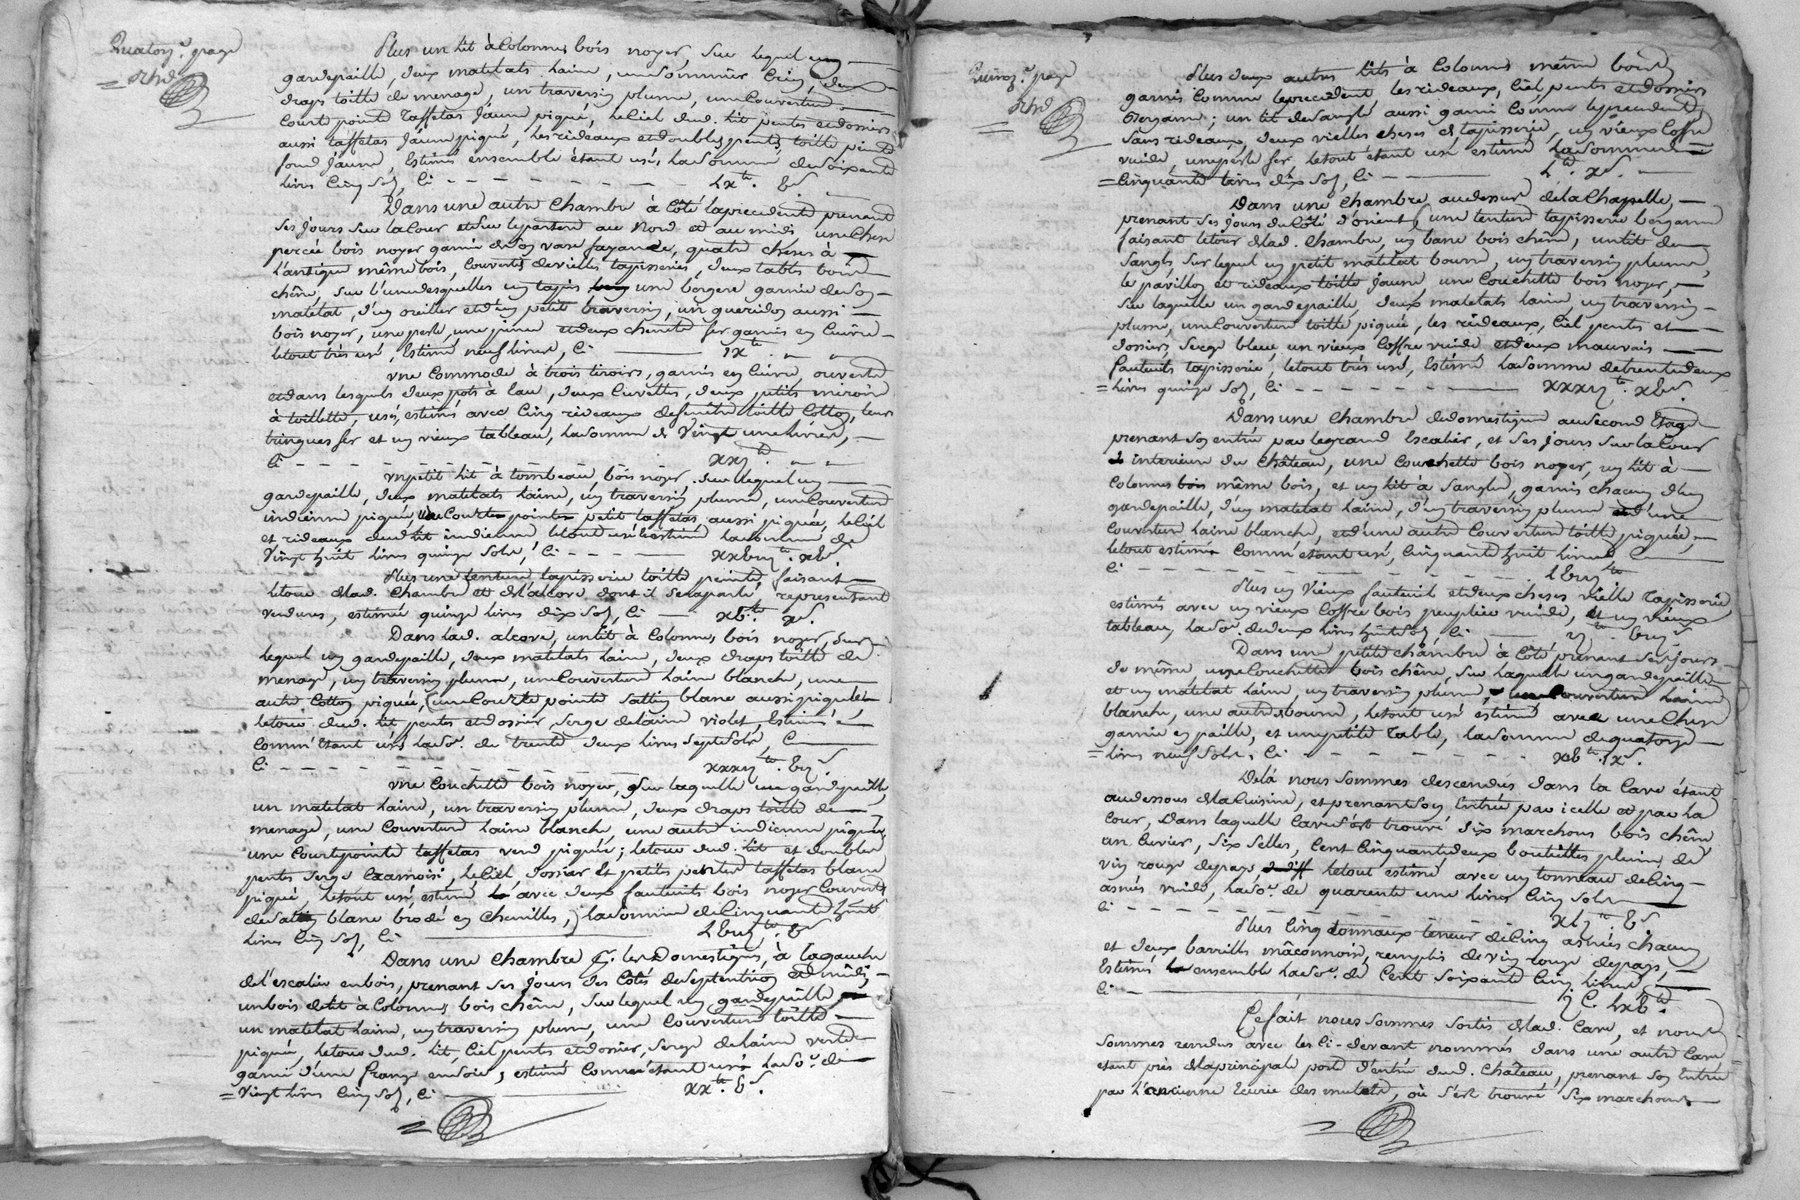 Quatorze. page
Plus un lit à Colonnes bois noyer, sur lequel un
gardepaille, deux matelats laine, un sommier Crin, deux
draps toille de menage, un traversin plume, une Couverture
Courte pointe taffetas Jaune piqué, le Ciel dud. lit pentes et dossiers
aussi taffetas Jaune piqué, les rideaux et doubles pentes toille peinte
fond jaune, Estimés ensemble étant usés la somme de soixante
livres Cinq sols, Ci LX tt. V s.
Dans une autre Chambre à Côté la precedente prenant
ses jours sur la Cour et sur le parterre au Nord et au midi une Chese
percée bois noyer garnie de son vase fayance, quatre cheses à
l'antique même bois, Couvertes de vielles tapisseries, deux tables bois
chêne, sur l'une desquelles un tapis une bergere garnie de son
matelat, d'un oreiller et d'un petit traversin, un gueridon aussi
bois noyer, une pesle, une pince et deux chenets fer garnis en Cuivre
le tout très usé, Estimé neuf livres, Ci IX tt. " "
une Commode à trois tiroirs, garnis en Cuivre, ouverte
et dans lesquels deux pots à l'au, deux Cuvettes, deux petits miroirs
à toillette, usés, estimés avec Cinq rideaux de fenêtre toille Cotton, leur
tringues fer et un vieux tableau, la somme de Vingt une livres,
Ci XXI tt. " "
un petit lit à tombeau, bois noyer sur lequel un
gardepaille, deux matelats laine, un traversin plume, une Couverture
indienne piquée, une Courte pointe petit taffetas aussi piquée, le Ciel
et rideaux dud. lit indienne le tout usé Estimé la somme de
Vingt huit livres quinze sols, Ci XXVIII tt. XV s.
Plus une tenture tapisserie toille peinte, faisant
le tour de lad. Chambre et de l'alcove dont il sera parlé, representant
verdures, estimée quinze livres dix sols, Ci XV tt. X s.
Dans lad. alcove, un lit à Colonnes bois noyer, sur
lequel un gardepaille, deux matelats laine, deux draps toille de
menage, un traversin plume, une Couverture laine blanche, une
autre Cotton piquée, une Courte pointe sattin blanc aussi piquée
le tour dud. lit pentes et dossier, serge de laine violet Estimé
Comm'étant usés la so.e de trente deux livres sept sols,
Ci XXXII tt. VII s.
une Couchette bois noyer, sur laquelle une gardepaille,
un matelat laine, un traversin plume, deux draps toille de
menage, une Couverture laine blanche, une autre indienne piquée,
une Courtepointe taffetas verd piquée; le tour dud. lit et doubles
pentes serge Cramoisi, le Ciel dossier et petites pentes taffetas blanc
piqué, le tout usé, estimé avec deux fauteuils bois noyer Couverts
de satin blanc brodé en Chenilles, la somme de Cinquante huit
livres Cinq sols, Ci LVIII tt. V s.
Dans une Chambre p.r les Domestiques, à la gauche
de l'escalier en bois, prenant ses jours des Côtés de Septentrion et midi,
un bois de lit à Colonnes bois chêne, sur lequel un gardepaille,
un matelat laine, un traversin plume, une Couverture toille
piquée, le tour dud. lit, Ciel pentes et dossier, serge de laine verte
garni d'une frange en soie, estimé Comm'étant usé la so.e de
Vingt livres Cinq sols, Ci XX tt. V s.
Quinze. page
Plus deux autres lits à Colonnes même bois,
garnis Comme le precedent les rideaux, Ciel, pentes et dossiers
Bergame; un lit de sangle aussi garni Comme le precedent
sans rideaux, deux vielles cheses de tapisserie, un vieux Coffre
vuide, une pesle fer, le tout étant usé estimé la somme de
Cinquante livres dix sols, Ci L tt. X s.
Dans une Chambre au dessus de la Chappelle,
prenant ses jours du Côté d'orient, une tenture tapisserie bergame
faisant le tour de lad. Chambre, un banc bois chêne, un lit de
sangle sur lequel un petit matelat bourre, un traversin plume,
le pavillon et rideaux toille jaune, une Couchette bois noyer,
sur laquelle un gardepaille, deux matelats laine un traversin
plume, une Couverture toille piquée, les rideaux, Ciel pentes et
dossiers serge bleue, un vieux Coffre vuide et deux mauvais
fauteuils tapisserie, le tout très usé, Estimé la somme de trente deux
livres quinze sols, Ci XXXII tt. XV s.
Dans une Chambre de domestique au second Etage
prenant son entrée par le grand Escalier, et ses jours sur la Cour
interieure du Château, une Couchette bois noyer, un lit à
Colonnes même bois, et un lit à sangle, garnis chacun d'un
gardepaille, d'un matelat laine, d'un traversin plume d'une
Couverture laine blanche, et d'une autre Couverture toille piquée,
le tout estimé Comm'étant usé, Cinquante huit livres
Ci LVIII tt.
Plus un Vieux fauteuil et deux cheses vielle tapisserie
estimés avec un vieux Coffre bois peuplier vuide, et un vieux
tableau, la so.e de deux livres huit sols, Ci II tt. VIII s.
Dans une petite chambre à Côté prenant ses jours
de même une Couchette bois chêne, sur laquelle un gardepaille
et un matelat laine, un traversin plume, Couverture laine
blanche, une autre bourre, le tout usé estimé avec une Chese
garnie en paille, et une petite table, la somme de quatorze
livres neuf sols, Ci XIV tt. IX s.
Delà nous sommes descendus dans la Cave étant
au dessous de la Cuisine, et prenant son Entrée par icelle et par la
Cour, Dans laquelle Cave s'est trouvé dix marchons bois chêne
un Cuvier, six selles, Cent Cinquante deux bouteilles pleines de
vin rouge de pays le tout estimé avec un tonneau de Cinq
asnés vuide, la so.e de quarante une livres Cinq sols
Ci XLI tt. V s.
Plus Cinq tonneaux teneur de Cinq asnées chacun
et deux barrils mâconnois, remplis de vin rouge de pays,
Estimés ensemble la so.e de Cent soixante Cinq livres
Ci C. LXV tt.
Ce fait nous sommes sortis de lad. Cave, et nous
sommes rendus avec les Ci-devant nommés dans une autre Cave
etant près de la principale porte d'entrée dud. Château, prenant son Entrée
par l'ancienne Ecurie des mulets, où s'est trouvé six marchons